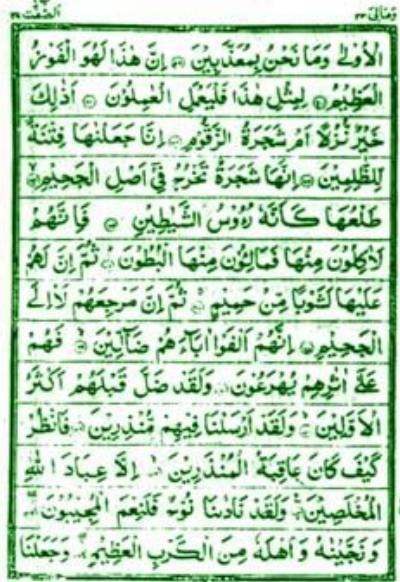 وَمَالِىَ ٢٣
الصّٰفّٰت ٣٧
الْاُوْلٰى وَمَا نَحْنُ بِمُعَذَّبِيْنَ ۝ اِنَّ هٰذَا لَهُوَ الْفَوْزُ
الْعَظِيْمُ ۝ لِمِثْلِ هٰذَا فَلْيَعْمَلِ الْعٰمِلُوْنَ ۝ اَذٰلِكَ
خَيْرٌ نُّزُلًا اَمْ شَجَرَةُ الزَّقُّوْمِ ۝ اِنَّا جَعَلْنٰهَا فِتْنَةً
لِّلظّٰلِمِيْنَ ۝ اِنَّهَا شَجَرَةٌ تَخْرُجُ فِيْٓ اَصْلِ الْجَحِيْمِ ۝
طَلْعُهَا كَاَنَّهٗ رُءُوْسُ الشَّيٰطِيْنِ ۝ فَاِنَّهُمْ
لَاٰكِلُوْنَ مِنْهَا فَمَالِـُٔوْنَ مِنْهَا الْبُطُوْنَ ۝ ثُمَّ اِنَّ لَهُمْ
عَلَيْهَا لَشَوْبًا مِّنْ حَمِيْمٍ ۝ ثُمَّ اِنَّ مَرْجِعَهُمْ لَاۡاِلَى
الْجَحِيْمِ ۝ اِنَّهُمْ اَلْفَوْا اٰبَآءَهُمْ ضَآلِّيْنَ ۝ فَهُمْ
عَلٰٓى اٰثٰرِهِمْ يُهْرَعُوْنَ ۝ وَلَقَدْ ضَلَّ قَبْلَهُمْ اَكْثَرُ
الْاَوَّلِيْنَ ۝ وَلَقَدْ اَرْسَلْنَا فِيْهِمْ مُّنْذِرِيْنَ ۝ فَانْظُرْ
كَيْفَ كَانَ عَاقِبَةُ الْمُنْذَرِيْنَ ۝ اِلَّا عِبَادَ اللّٰهِ
الْمُخْلَصِيْنَ ۝ وَلَقَدْ نَادٰىنَا نُوْحٌ فَلَنِعْمَ الْمُجِيْبُوْنَ ۝
وَنَجَّيْنٰهُ وَاَهْلَهٗ مِنَ الْكَرْبِ الْعَظِيْمِ ۝ وَجَعَلْنَا